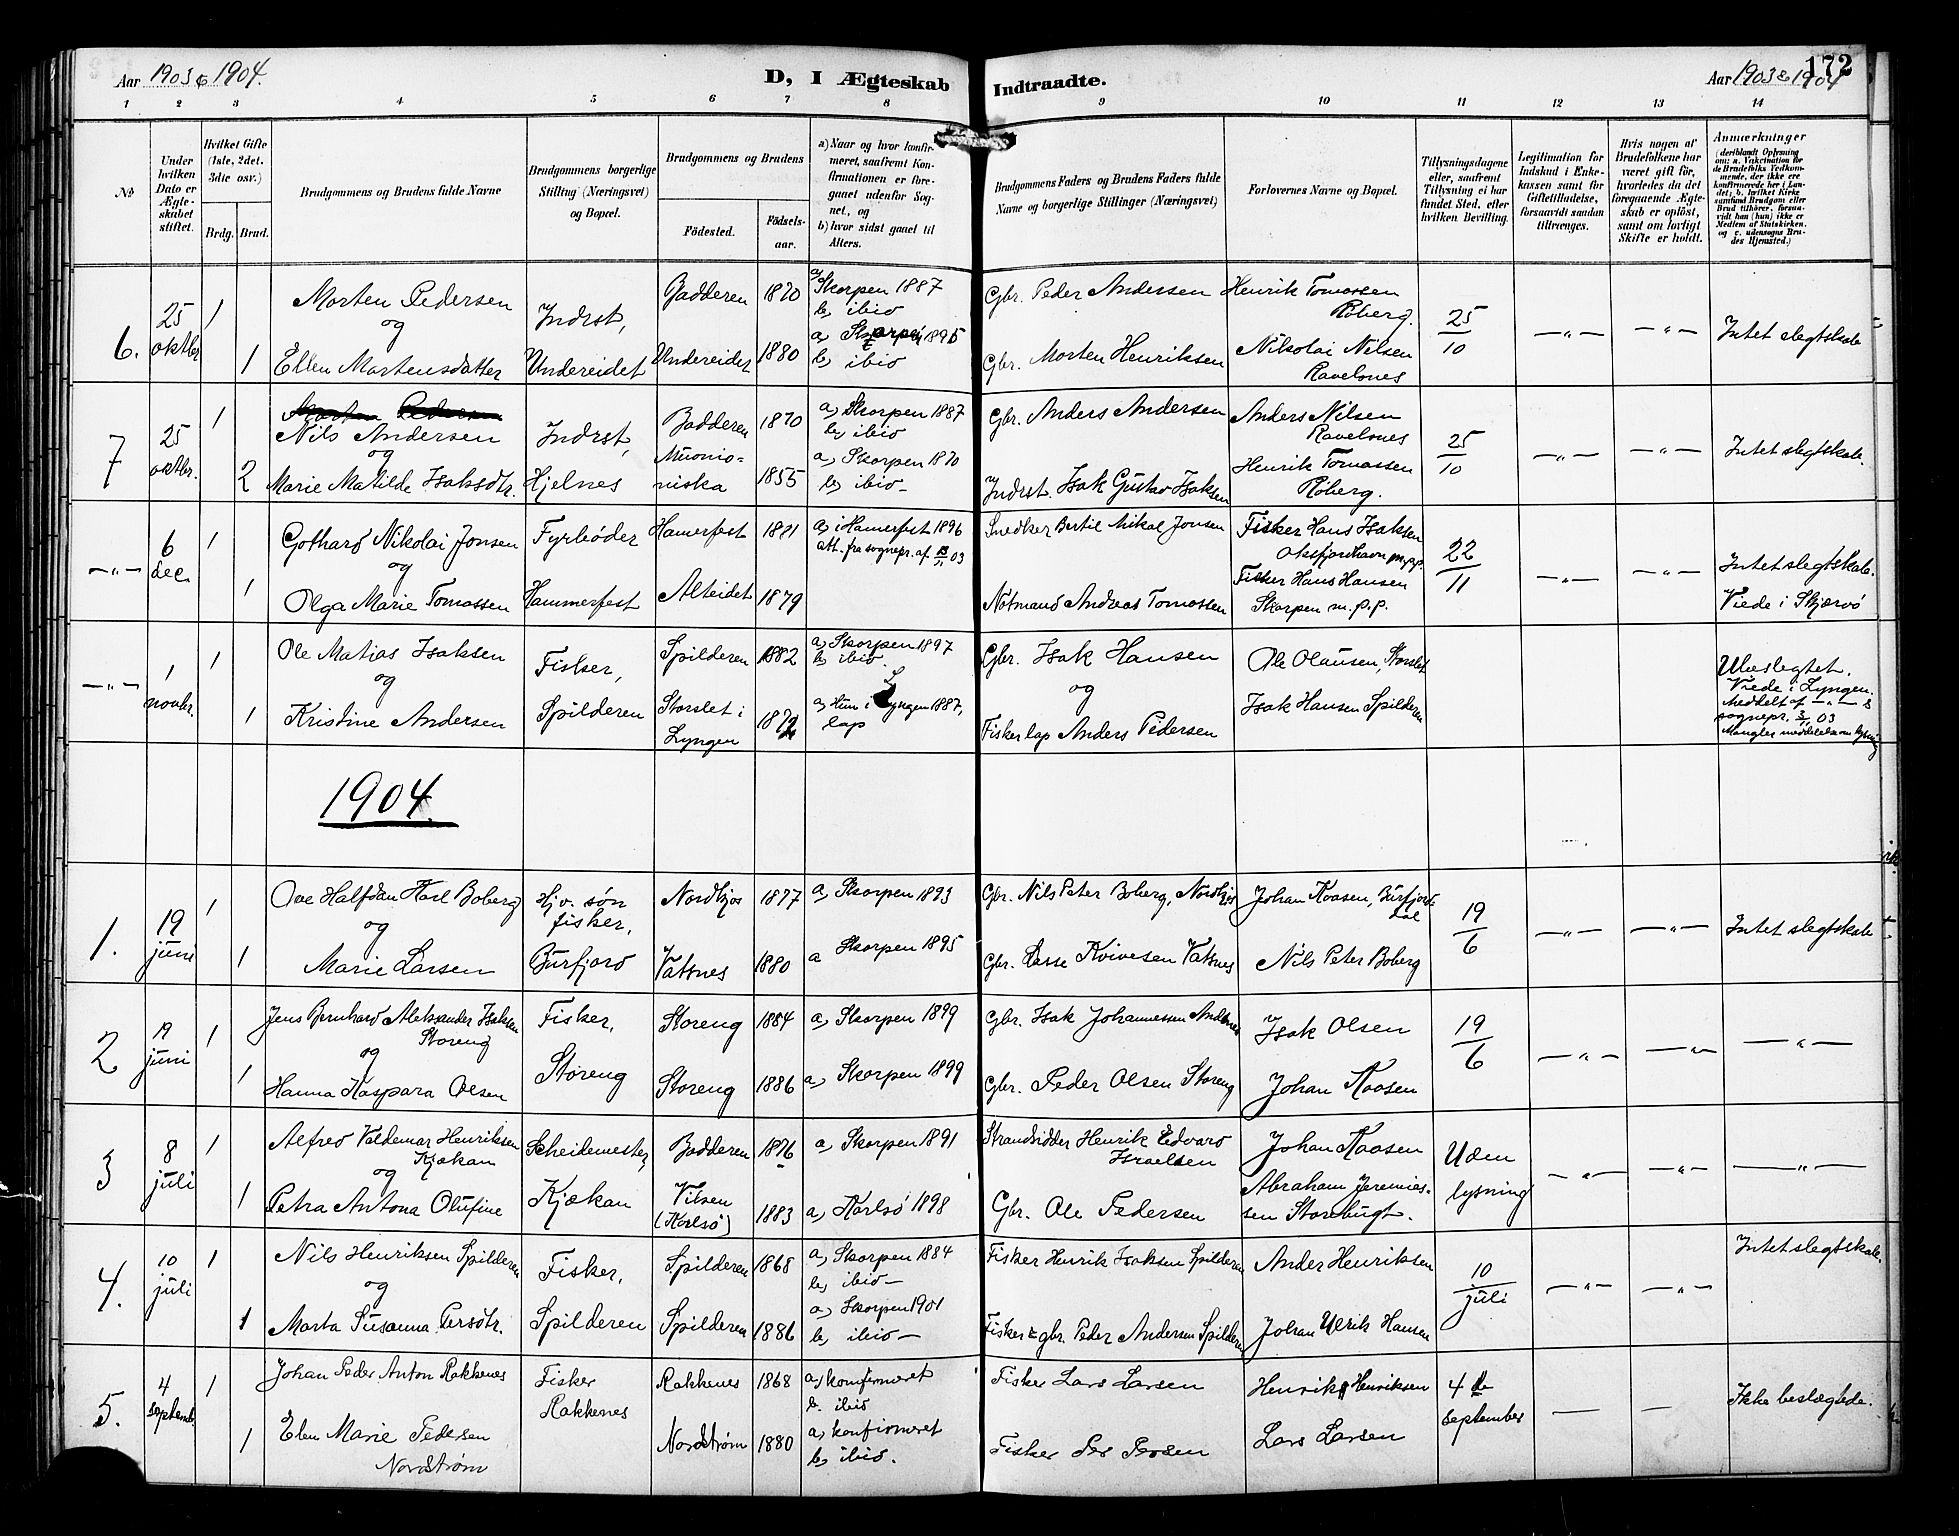 Aar 1903 & 1904.
D, I Ægteskab
Indtraadte.
Aar 1903 & 1904
172
1 2 3 4 5 6 7 8 9 10 11 12 13 14
№
Under hvilken Dato er Ægteskabet stiftet.
Hvilket Gifte (1ste, 2det. 3die osv.)
Brdg. Brud.
Brudgommens og Brudens fulde Navne
Brudgommens borgerlige Stilling (Næringsvei) og Bopæl.
Brudgommens og Brudens
Fødested.
Fødselsaar.
a) Naar og hvor konfirmeret, saafremt Konfirmationen er foregaaet udenfor Sognet, og
b) hvor sidst gaaet til Alters.
Brudgommens Faders og Brudens Faders fulde Navne og borgerlige Stillinger (Næringsvei)
Forlovernes Navne og Bopæl.
Tillysningsdagene eller, saafremt Tillysning ei har fundet Sted, efter hvilken Bevilling.
Legitimation for Indskud i Enkekassen samt for Giftetilladelse, forsaavidt saadan tiltrænges.
Hvis nogen af Brudefolkene har været gift før, hvorledes da det foregaaende Ægteskab er opløst, samt om lovligt Skifte er holdt.
Anmærkninger
(deriblandt Oplysning om: a. Vakcination for de Brudefolks Vedkommende, der ikke ere konfirmerede her i Landet; b. hvilket Kirkesamfund Brudgom eller Brud tilhører, forsaavidt han (hun) ikke er Medlem af Statskirken, og c. udensogns Brudes Hjemsted.)
6. 25 oktbr 1 Morten Pedersen Indrst, Badderen 1870 a) Skorpen 1887 b) ibid Gbr. Peder Andersen Henrik Tomassen Röberg. 25/10 —„— —„— Intet slegtskab
og
1 Ellen Martensdatter Undereidet Undereidet 1880 a) Skorpen 1895 b) ibid Gbr. Morten Henriksen Nikolai Nilsen Ravelsnes
7 25 oktbr. 1 Morten Pedersen
Nils Andersen Indrst, Badderen 1870 a) Skorpen 1887 b) ibid Gbr. Anders Andersen Anders Nilsen Ravelsnes 25/10 —„— —„— Intet slegtskab.
og
2 Marie Matilde Isaksdtr. Hjelnes Muonioniska 1855 a) Skorpen 1870 b) ibid— Indrst. Isak Gustav Isaksen Henrik Tomassen Röberg.
—„— 6 dec. 1 Gothard Nikolai Jonsen Fyrbøder Hamerfest 1881 a) i Hamerfest 1896 att. fra sognepr. af 03 Snedker Bertil Mikal Jonsen Fisker Hans Isaksen Oksfjordhavn m.p.p. 22/11 —„— —„— Intet slegtskab.
og
1 Olga Marie Tomassen Hammerfest Alteidet 1879 Notmand Andreas Tomassen Fisker Hans Hansen Skorpen m.p.p. Viede i Skjærvö
—„— 1 novbr. 1 Ole Matias Isaksen Fisker, Spilderen 1882 a) Skorpen 1897 b) ibid. Gbr. Isak Hansen Ole Olausen, Storslet Ubeslegtet.
og og Viede i Lyngen.
1 Kristine Andersen Spilderen Storslet i Lyngen 1872 a) Hun i Lyngen 1887, lap Fisker lap Anders Pedersen Isak Hansen Spilderen Meddelt af —„— s sognepr. 03
Mangler meddelelse om lysning
1904.
1. 19 juni 1 Ove Halfdan Karl Boberg Hjv. søn fisker, Nordkjos 1877 a) Skorpen 1893 Gbr. Nils Peter Boberg, Nordkjos Johan Koasen, Burfjorddal 19/6 —„— —„— Intet slegtskab
og
1 Marie Larsen Burfjord Vatsnes 1880 a Skorpen 1895 Gbr. Lasse Kvivesen Vatsnes Nils Peter Boberg
2 19 juni 1 Jens Bernhard Aleksander Isaksen Storeng Fisker, Storeng 1884 a) Skorpen 1899 Gbr. Isak Johannessen Isak Olsen 19/6 —„— —„— —„—
og
1 Hanna Kaspara Olsen Storeng Storeng 1886 a) Skorpen 1899 Gbr. Peder Olsen Storeng Johan Koasen
3 8 juli 1 Alfred Valdemar Henriksen Kjækan Scheidemester, Badderen 1876 a) Skorpen 1891 Strandsidder Henrik Edvard Israelsen Johan Koasen Uden lysning —„— —„— —„—
og
1 Petra Antona Olufine Kjækan (Karlsö) 1883 a) Karlsö 1898 Gbr. Ole Pedersen Abraham Jeremiassen Storebugt.
4. 10 juli 1 Nils Henriksen Spilderen Fisker, Spilderen 1868 a) Skorpen 1884 b) ibid— Fisker Henrik Isaksen Spilderen Ander Henriksen 10/juli —„— —„— Intet slegtskab.
og
1 Marta Susanna Persdtr. Spilderen Spilderen 1886 a) Skorpen 1901 b) ibid— Fisker & gbr. Peder Andersen Spilderen Johan Ulrik Hansen
5. 4 septemb. 1 Johan Peder Anton Rakkenes Fisker Rakkenes Rakkenes 1868 a) komfirmeret b. ibid Fisker Lars Larsen Henrik Henriksen 4de september — — Ikke beslægtede.
1 Elen Marie Pedersen Nordstrøm Nordstrøm 1880 a) konfirmeret b) ibid. Fisker Per Persen Lars Larsen